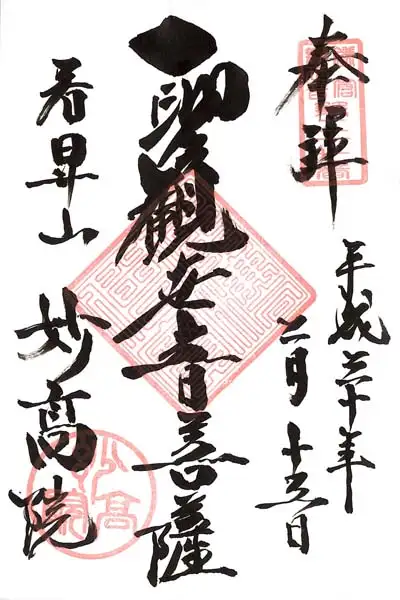 奉拝
平成三十年
二月十五日
聖観世音菩薩
山
妙高院
妙高院